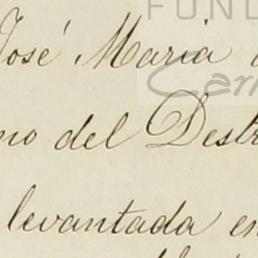 FUND
José Maria
no del Dest
levantada en